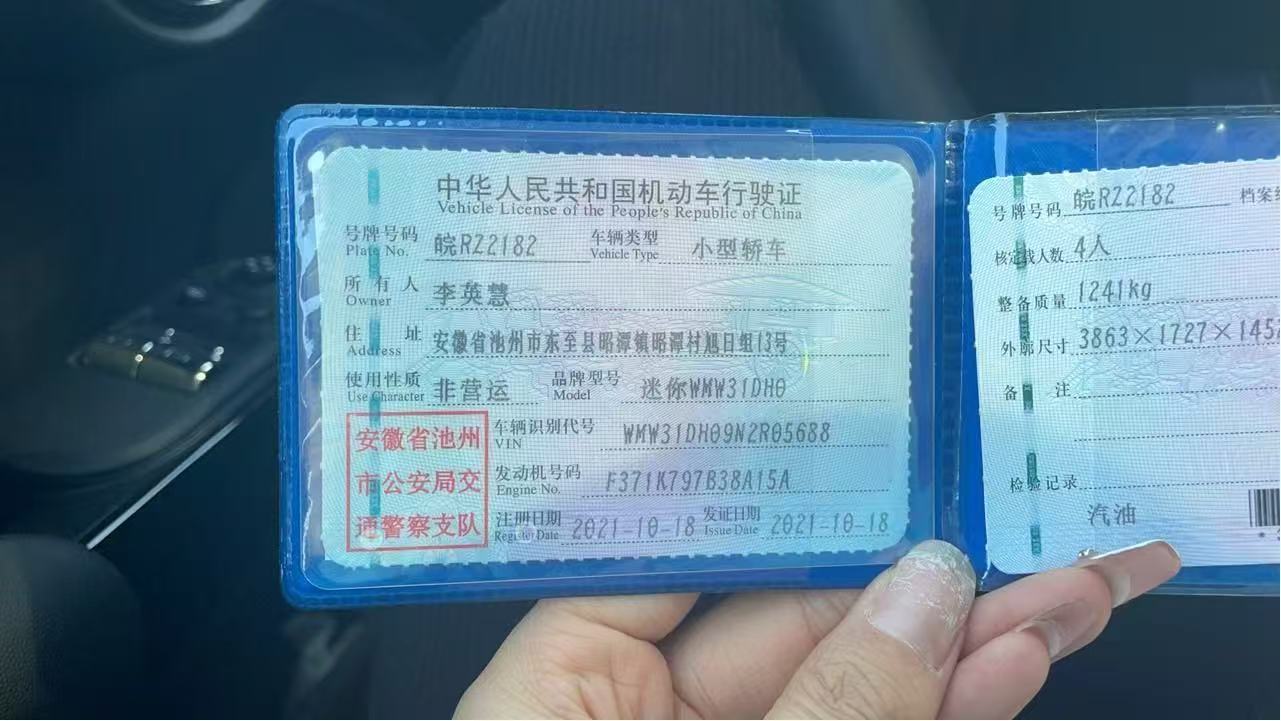 中华人民共和国机动车行驶证
Vehicle License of the People's Republic of China
号牌号码 皖RZ2182 车辆类型 小型轿车
Plate No. Vehicle Type
所有人 李英慧
Owner
住址 安徽省池州市东至县昭潭镇昭潭村旭日组13号
Address
使用性质 非营运 品牌型号 迷你WMW31DH0
Use Character Model
安徽省池州
市公安局交
通警察支队
车辆识别代号 WMW31DH09N2R05688
VIN
发动机号码 F371K797B38A15A
Engine No.
注册日期 2021-10-18 发证日期 2021-10-18
Register Date Issue Date
号牌号码 皖RZ2182 档案
核定载人数 4人
整备质量 1241kg
外廓尺寸 3863×1727×145
备注
检验记录
汽油